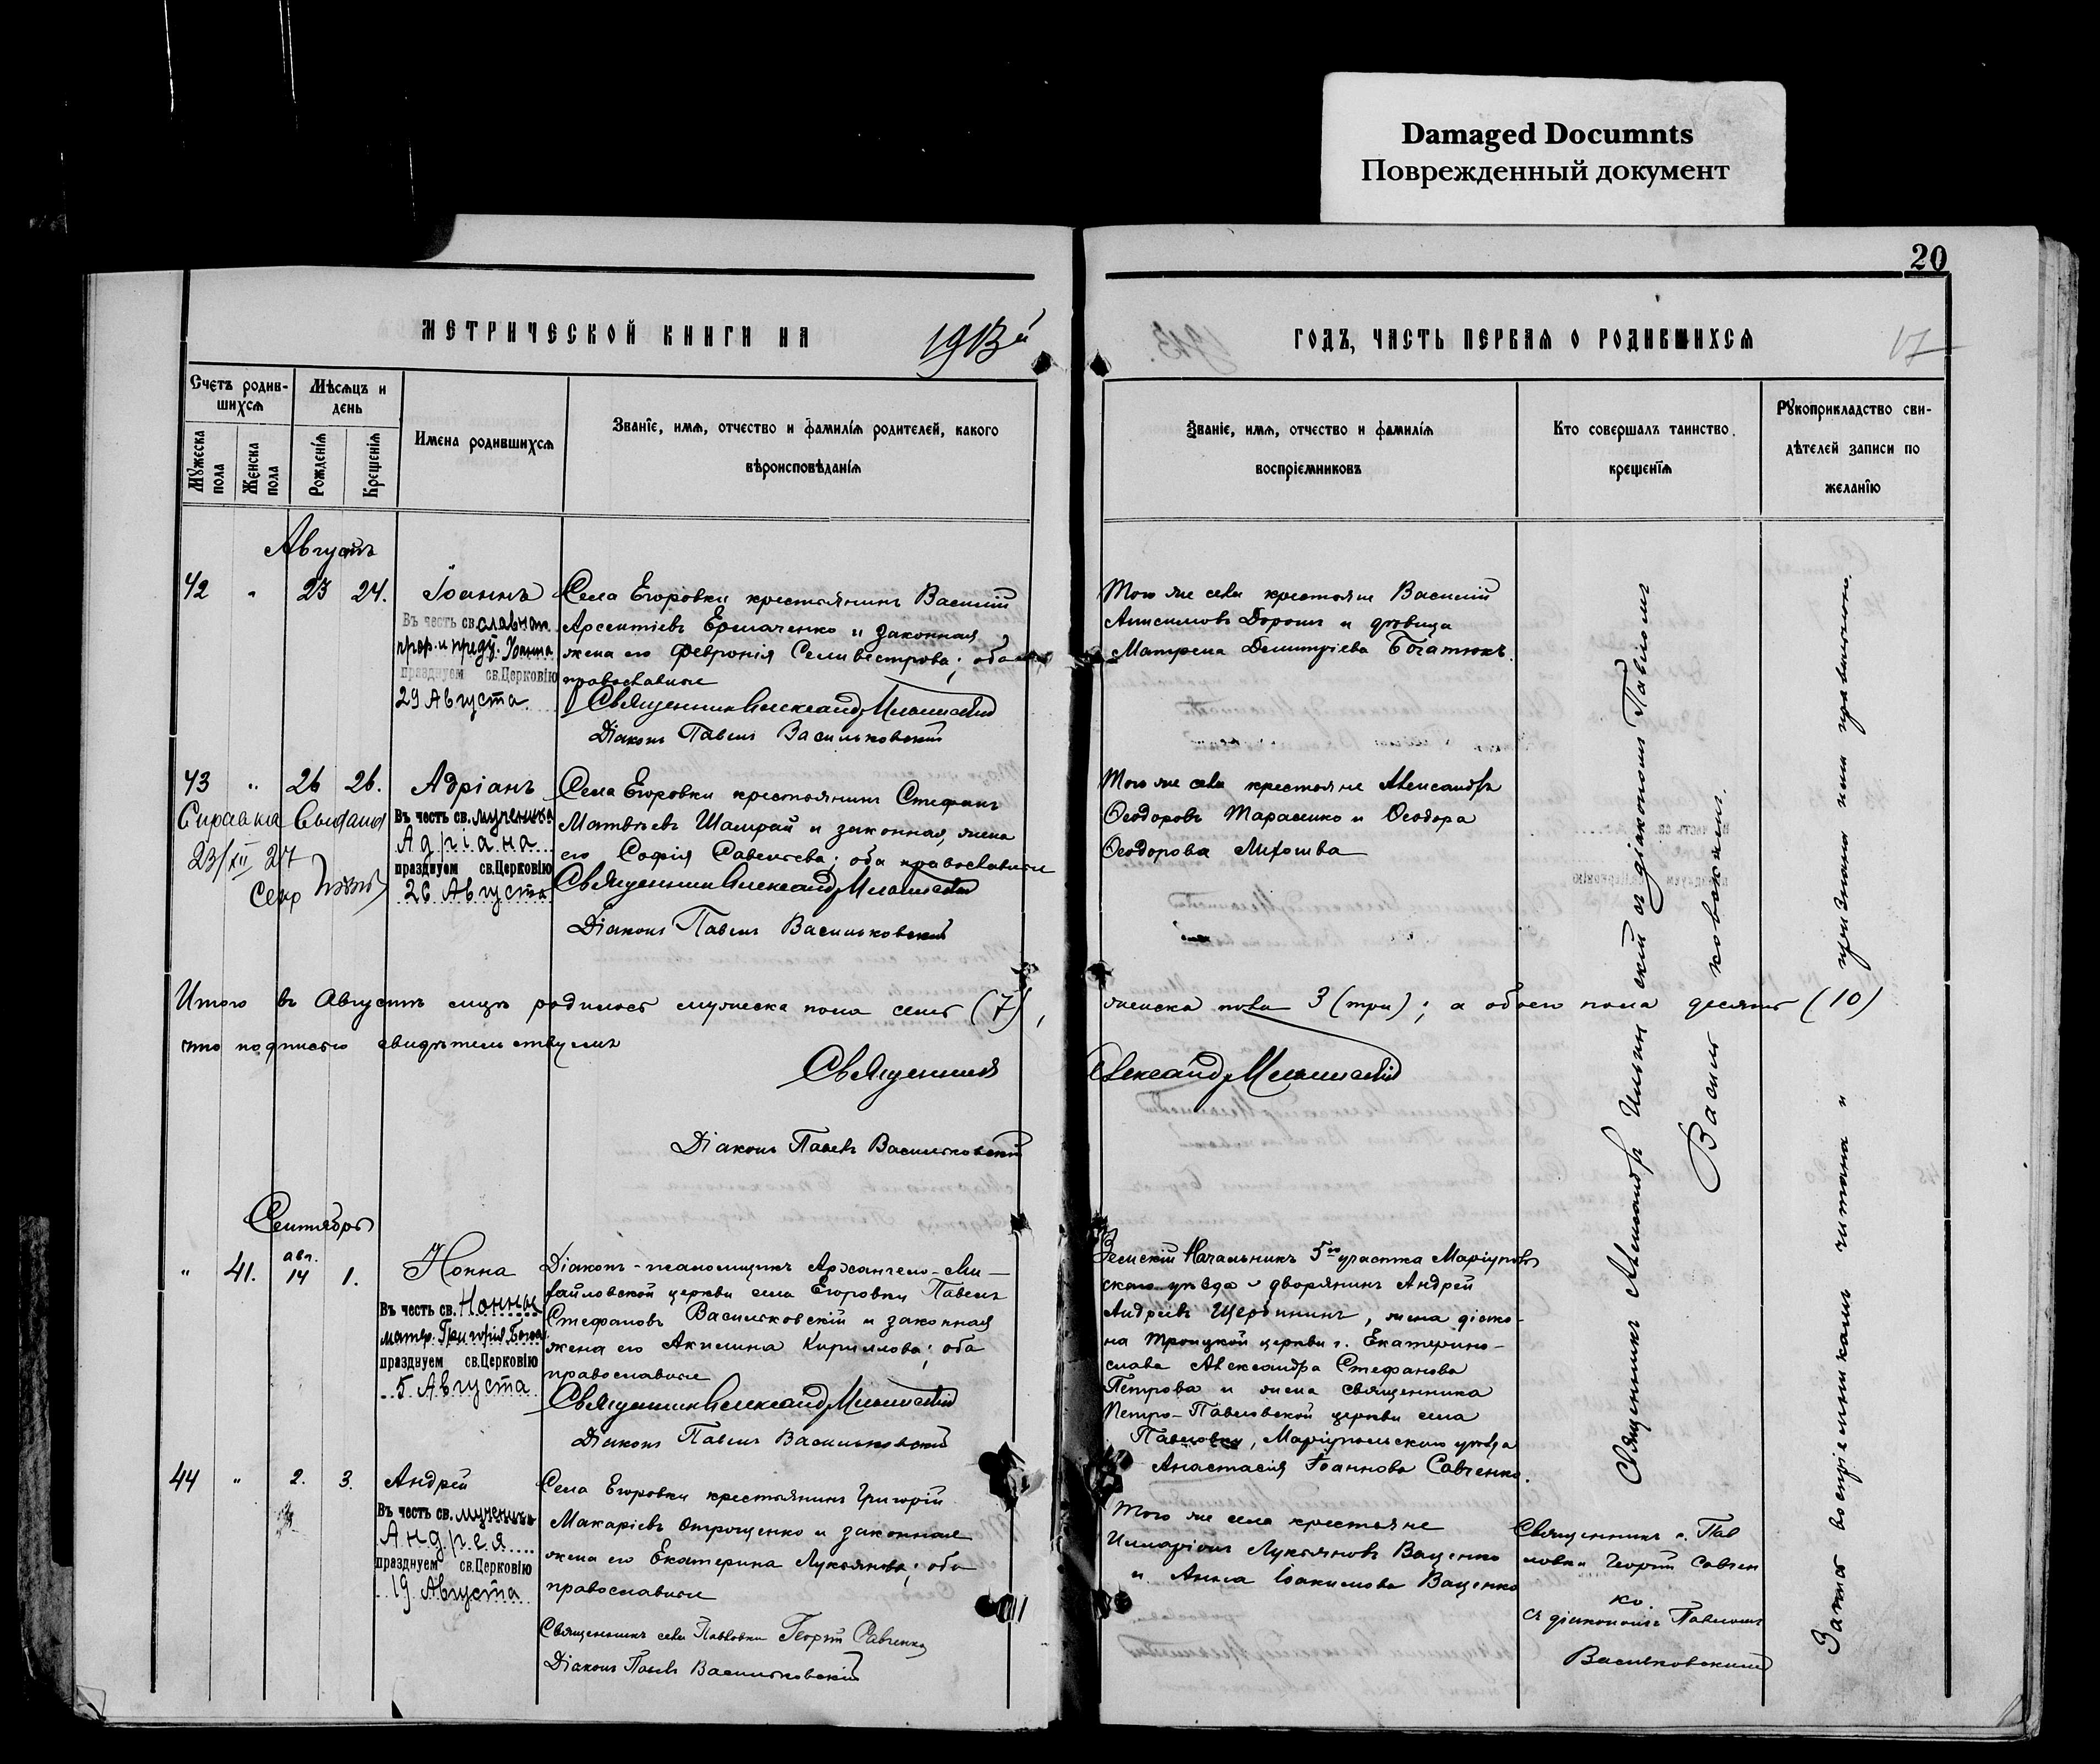 Damaged Documnts
Поврежденный документ
20
МЕТРИЧЕСКОЙ КНИГИ НА 1913й
ГОДЪ, ЧАСТЬ ПЕРВАЯ О РОДИВШИХСЯ
17
Счетъ родив-
шихся
Мѣсяцъ и
день
Мужеска
пола
Женска
пола
Рожденія
Крещенія
Имена родившихся
Званіе, имя, отчество и фамилія родителей, какого
вѣроисповѣданія
Званіе, имя, отчество и фамилія
воспріемниковъ
Кто совершалъ таинство
крещенія
Рукоприкладство сви-
дѣтелей записи по
желанію
Августъ
42 " 23 24.
Іоаннъ
Въ честь св. славнаго
прор. и предт. Іоанна
празднуем св.Церковію
29 Августа
Села Егоровки крестьянинъ Василій
Арсентіевъ Ермаченко и законная
жена его Февронія Селивестрова; оба
православные
Священникъ Александр
Діаконъ Павелъ Васильковскій
Того же села крестьяне Василій
Анисимовъ и дѣвица
Матрена Димитріева Богатюкъ.
43 " 26 26.
Справка выдана
23/XII 27
Секр
Адріанъ
Въ честь св. мученика
Адріана
празднуем св.Церковію
26 Августа
Села Егоровки крестьянинъ Стефанъ
Матвѣевъ Шамрай и законная жена
его Софія Савельева; оба православные
Священникъ Александр
Діаконъ Павелъ Васильковскій
Того же села крестьяне Александръ
Ѳеодоровъ Тарасенко и Ѳеодора
Ѳеодорова
Итого въ Августѣ мцѣ родилось мужеска пола семь (7), женска пола 3 (три); а обоего пола десять (10)
что подписью свидѣтельствуемъ
Священникъ Александр
Діаконъ Павелъ Васильковскій
Священникъ Александръ Ильинскій съ діакономъ Павломъ
Васильковскимъ.
Запись воспріемникамъ читана и признана ими правильною.
Сентябрь
" 41. авг. 14 1.
Нонна
Въ честь св. Нонны
матер. Григорія Богос.
празднуем св.Церковію
5 Августа
Діаконъ-псаломщикъ Архангело-Ми-
хайловской церкви села Егоровки Павелъ
Стефановъ Васильковскій и законная
жена его Акилина Кириллова; оба
православные
Священникъ Александр
Діаконъ Павелъ Васильковскій
Земскій Начальникъ 5го участка Маріуполь
скаго уѣзда дворянинъ Андрей
Андреевъ Щербининъ, жена діако-
на Троицкой церкви г. Екатерино-
слава Александра Стефанова
Петрова и жена священника
Петро-Павловской церкви села
Павловки, Маріупольскаго уѣзда
Анастасія Іоаннова Савченко.
44 " 2. 3.
Андрей
Въ честь св. мученика
Андрея
празднуем св.Церковію
19 Августа
Села Егоровки крестьянинъ Григорій
Макаріевъ Отрощенко и законная
жена его Екатерина Лукьянова; оба
православные
Священникъ села Павловки Георгій Савченко
Діаконъ Павелъ Васильковскій
Того же села крестьяне
Иларіонъ Лукьяновъ Ващенко
и Анна Іоакимова Ващенко
Священникъ с. Пав
ловки Георгій Савчен
ко.
съ діакономъ Павломъ
Васильковскимъ